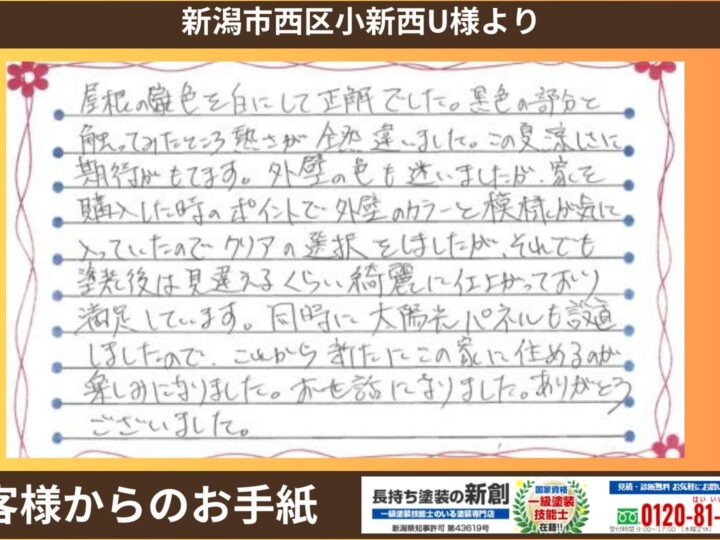 新潟市西区小新西U様より
屋根の色を白にして正解でした。黒色の部分と
触ってみたところ熱さが全然違いました。この夏涼しさに
期待がもてます。外壁の色も迷いましたが、家を
購入した時のポイントで外壁のカラーと模様が気に
入っていたのでクリアの選択をしましたが、それでも
塗装後は見違えるくらい綺麗に仕上がっており
満足しています。同時に太陽光パネルも設置
しましたので、これから新たにこの家に住めるのが
楽しみになりました。お世話になりました。ありがとう
ございました。
客様からのお手紙
長持ち塗装の新創
一級塗装技能士のいる塗装専門店
新潟県知事許可 第43619号
国家資格
一級塗装
技能士
在籍!!
見積・診断無料 お気軽にお問い
はい
0120-81-
受付時間 9:00~17:00 (木曜定休)